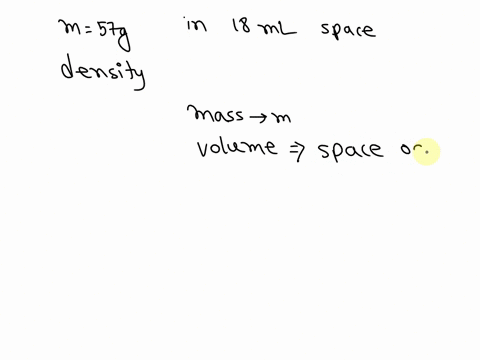 m = 57g in 18 mL space
density
mass → m
volume ⇒ space